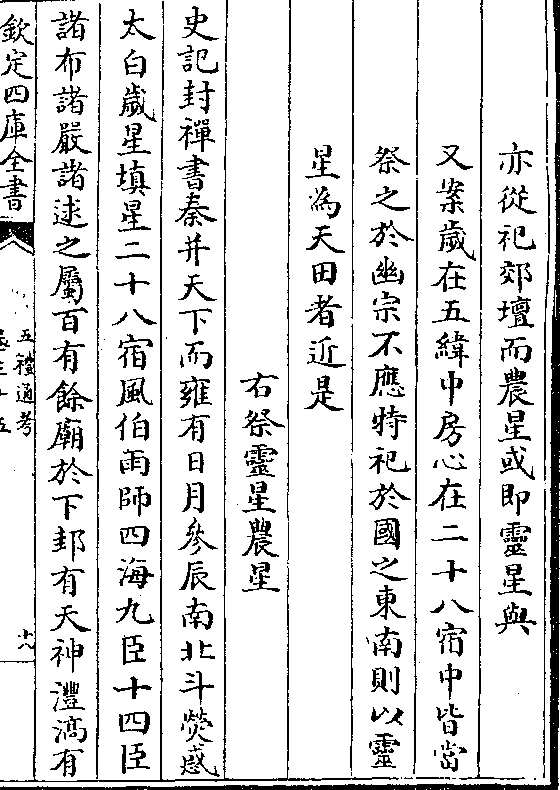 亦從祀郊壇而農星或即靈星與
又案歲在五緯中房心在二十八宿中皆當
祭之於幽宗不應特祀於國之東南則以靈
星為天田者近是
右祭靈星農星
史記封禪書秦并天下而雍有日月參辰南北斗熒惑
太白歲星填星二十八宿風伯雨師四海九臣十四臣
諸布諸嚴諸逑之屬百有餘廟於下邽有天神灃滈有
欽定四庫全書
五禮通考
卷三十五
十八